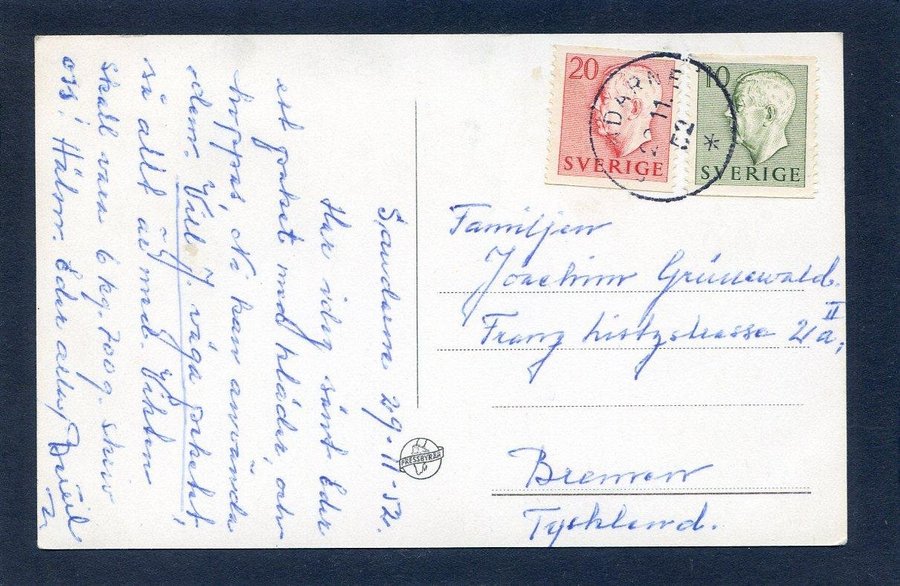 Sandarne 29-11-52.
Har idag sänt Eder
ett paket med kläder, och
hoppas, Ni kan använda
dem. Vill I. väga paketet,
så allt är med. Vikten
skall vara 6 kg. 700 g. Skriv
oss! Hälsn. Eder
20 SVERIGE
10 SVERIGE
DARNE
11.15
52 *
PRESSBYRÅN
Familjen
Joachim Grünewald.
Franz Lisztstrasse 21a, II
Bremen
Tyskland.